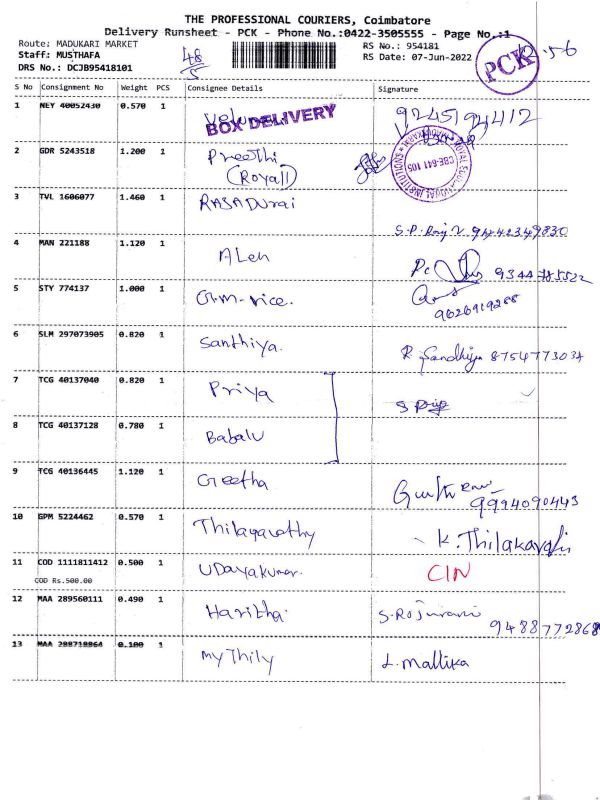 THE PROFESSIONAL COURIERS, Coimbatore
Delivery Runsheet - PCK - Phone No.:0422-3505555 - Page No.:1
Route: MADUKARI MARKET
Staff: MUSTHAFA
DRS No.: DCJB95418101
48/5
RS No.: 954181
RS Date: 07-Jun-2022
PCK
S No Consignment No Weight PCS Consignee Details Signature
1 NEY 40052430 0.570 1 BOX DELIVERY 9245194412
2 GDR 5243518 1.200 1 Preethi
(Royall)
CBE-641 105
3 TVL 1606077 1.460 1 RASADurai
S.P. 9442349830
4 MAN 221188 1.120 1 ALen
5 STY 774137 1.000 1 G.M-rice.
9626919288
6 SLM 297073905 0.820 1 Santhiya. R. Sandhiya 8754773034
7 TCG 40137040 0.820 1 Priya S priya
8 TCG 40137128 0.780 1 Babalu
9 TCG 40136445 1.120 1 Geetha
9994090443
10 GPM 5224462 0.570 1 Thilagavathy K. Thilakavathi
11 COD 1111811412 0.500 1 UDayakumar. CIN
COD Rs.500.00
12 MAA 289560111 0.490 1 Haritha. S. Rojarani
9488772868
13 MAA 288718864 0.100 1 myThily L. Mallika